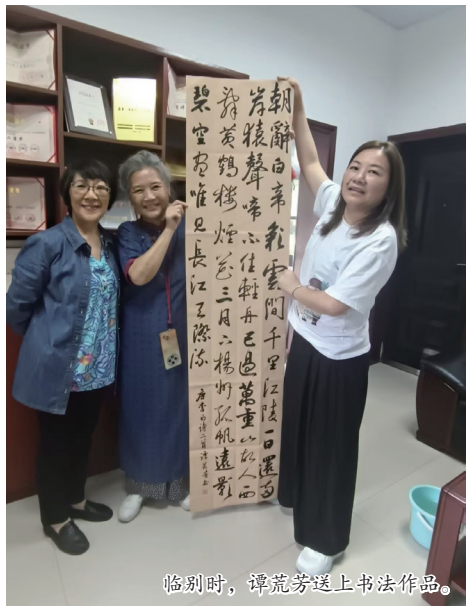 朝辭白帝彩雲間千里江陵一日還兩
岸猿聲啼不住輕舟已過萬重山故人西
辭黃鶴樓煙花三月下揚州孤帆遠影
碧空盡唯見長江天際流
唐李白詩二首
临别时，谭荒芳送上书法作品。